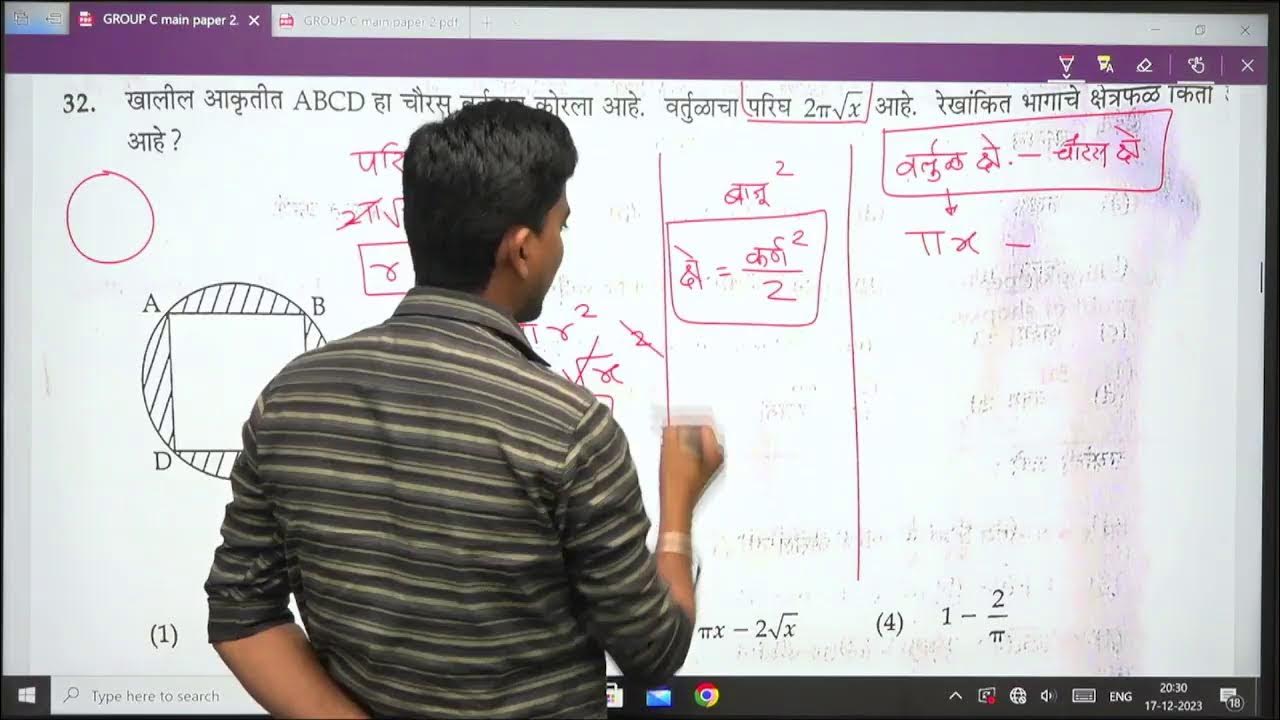 GROUP C main paper 2.
GROUP C main paper 2 pdf
32. खालील आकृतीत ABCD हा चौरस कोरला आहे. वर्तुळाचा परिघ 2π√x आहे. रेखांकित भागाचे क्षेत्रफळ किती
आहे ?
वर्तुळ क्षे. – चौरस क्षे.
πx –
बाजू²
क्षे. = कर्ण² / 2
परि
2π√
r
πr²
√x ²
A B
D
(1)
πx – 2√x
(4) 1 – 2/π
Type here to search
ENG
20:30
17-12-2023
18